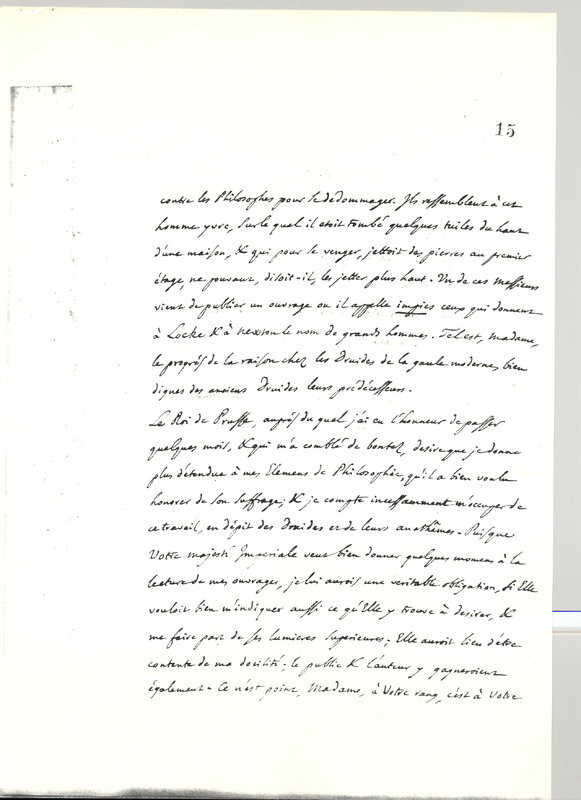 15
contre les Philosophes pour se dedommager. Ils ressemblent à cet
homme yvre, sur le quel il etoit tombé quelques tuiles du haut
d'une maison, & qui pour se venger, jettoit des pierres au premier
étage, ne pouvant, disoit-il, les jetter plus haut. Un de ces messieurs
vient de publier un ouvrage ou il appelle impies ceux qui donnent
à Locke & à newton le nom de grands hommes. Tel est, Madame,
le progrès de la raison chez les Druides de la gaule moderne, bien
dignes des anciens Druides leurs prédécesseurs.
Le Roi de Prusse, auprès du quel j'ai eu l'honneur de passer
quelques mois, & qui m'a comblé de bontez, desire que je donne
plus d'étendue à mes Elemens de Philosophie, qu'il a bien voulu
honorer de son suffrage; & je compte incessamment m'occuper de
ce travail, en dépit des Druides et de leurs anathêmes. Puisque
Votre majesté Imperiale veut bien donner quelques momens à la
lecture de mes ouvrages, je lui aurois une veritable obligation, si Elle
vouloit bien m'indiquer aussi ce qu'Elle y trouve à desirer, &
me faire part de ses lumieres superieures; Elle auroit lieu d'être
contente de ma docilité; le public & l'auteur y gagneroient
également. Ce n'est point, Madame, à Votre rang, c'est à Votre